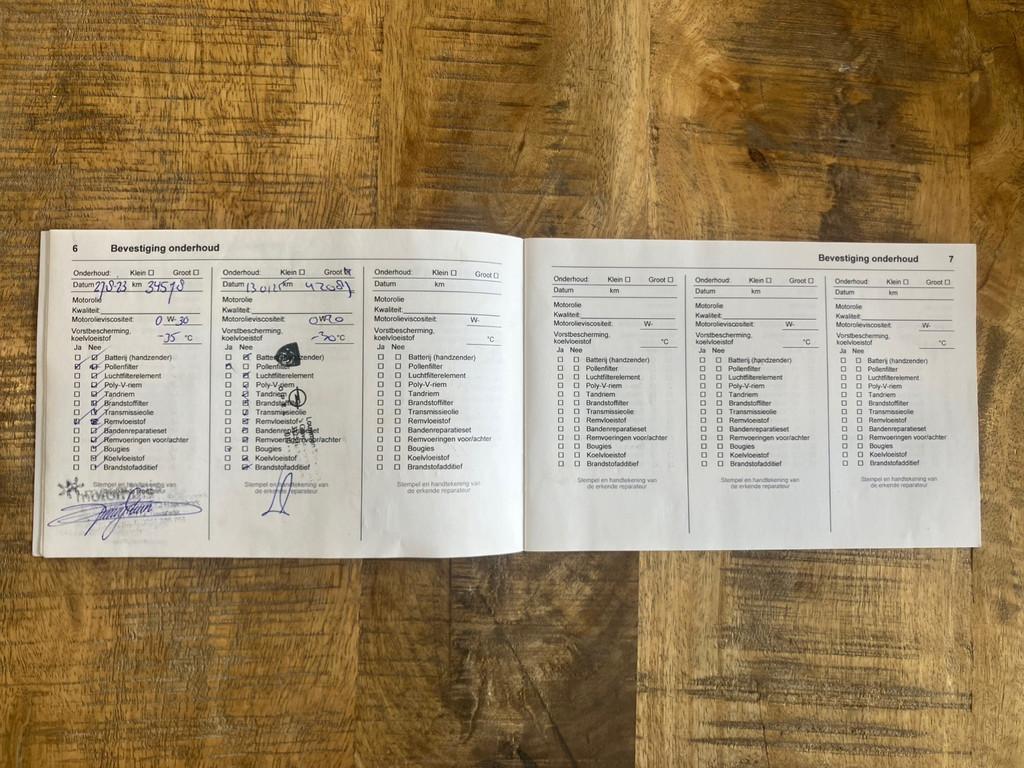 6 Bevestiging onderhoud
Onderhoud: Klein ☐ Groot ☐
Datum 27-8-23 km 34578
Motorolie
Kwaliteit:
Motorolieviscositeit: 0 W- 30
Vorstbescherming,
koelvloeistof -35 °C
Ja Nee
Batterij (handzender)
Pollenfilter
Luchtfilterelement
Poly-V-riem
Tandriem
Brandstoffilter
Transmissieolie
Remvloeistof
Bandenreparatieset
Remvoeringen voor/achter
Bougies
Koelvloeistof
Brandstofadditief
Stempel en handtekening van
de erkende reparateur
Onderhoud: Klein ☐ Groot ☑
Datum km
Motorolie
Kwaliteit:
Motorolieviscositeit: 0 W- 20
Vorstbescherming,
koelvloeistof -30 °C
Ja Nee
Batterij (handzender)
Pollenfilter
Luchtfilterelement
Poly-V-riem
Tandriem
Brandstoffilter
Transmissieolie
Remvloeistof
Bandenreparatieset
Remvoeringen voor/achter
Bougies
Koelvloeistof
Brandstofadditief
Stempel en handtekening van
de erkende reparateur
Onderhoud: Klein ☐ Groot ☐
Datum km
Motorolie
Kwaliteit:
Motorolieviscositeit: W-
Vorstbescherming,
koelvloeistof °C
Ja Nee
Batterij (handzender)
Pollenfilter
Luchtfilterelement
Poly-V-riem
Tandriem
Brandstoffilter
Transmissieolie
Remvloeistof
Bandenreparatieset
Remvoeringen voor/achter
Bougies
Koelvloeistof
Brandstofadditief
Stempel en handtekening van
de erkende reparateur
Bevestiging onderhoud 7
Onderhoud: Klein ☐ Groot ☐
Datum km
Motorolie
Kwaliteit:
Motorolieviscositeit: W-
Vorstbescherming,
koelvloeistof °C
Ja Nee
Batterij (handzender)
Pollenfilter
Luchtfilterelement
Poly-V-riem
Tandriem
Brandstoffilter
Transmissieolie
Remvloeistof
Bandenreparatieset
Remvoeringen voor/achter
Bougies
Koelvloeistof
Brandstofadditief
Stempel en handtekening van
de erkende reparateur
Onderhoud: Klein ☐ Groot ☐
Datum km
Motorolie
Kwaliteit:
Motorolieviscositeit: W-
Vorstbescherming,
koelvloeistof °C
Ja Nee
Batterij (handzender)
Pollenfilter
Luchtfilterelement
Poly-V-riem
Tandriem
Brandstoffilter
Transmissieolie
Remvloeistof
Bandenreparatieset
Remvoeringen voor/achter
Bougies
Koelvloeistof
Brandstofadditief
Stempel en handtekening van
de erkende reparateur
Onderhoud: Klein ☐ Groot ☐
Datum km
Motorolie
Kwaliteit:
Motorolieviscositeit: W-
Vorstbescherming,
koelvloeistof °C
Ja Nee
Batterij (handzender)
Pollenfilter
Luchtfilterelement
Poly-V-riem
Tandriem
Brandstoffilter
Transmissieolie
Remvloeistof
Bandenreparatieset
Remvoeringen voor/achter
Bougies
Koelvloeistof
Brandstofadditief
Stempel en handtekening van
de erkende reparateur